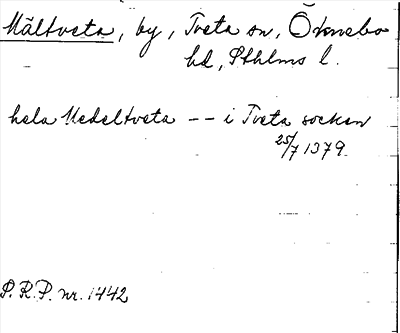 Mältveta, by, Tveta sn, Öknebo
hd, Sthlms l.
hela Medeltveta -- i Tveta socken
25/7 1379.
S.R.P. nr. 1442